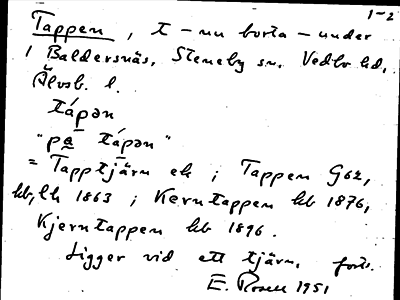 1-2
Tappen, t - nu borta - under
1 Baldersnäs, Steneby sn. Vedbo hd,
Älvsb. l.
tápən
"pa tápən"
= Tapptjärn ek ; Tappen Göz,
hb, lk 1863 ; Kerntappen hb 1876,
Kjerntappen hb 1896.
Ligger vid ett tjärn, forts.
E. Rosell 1951